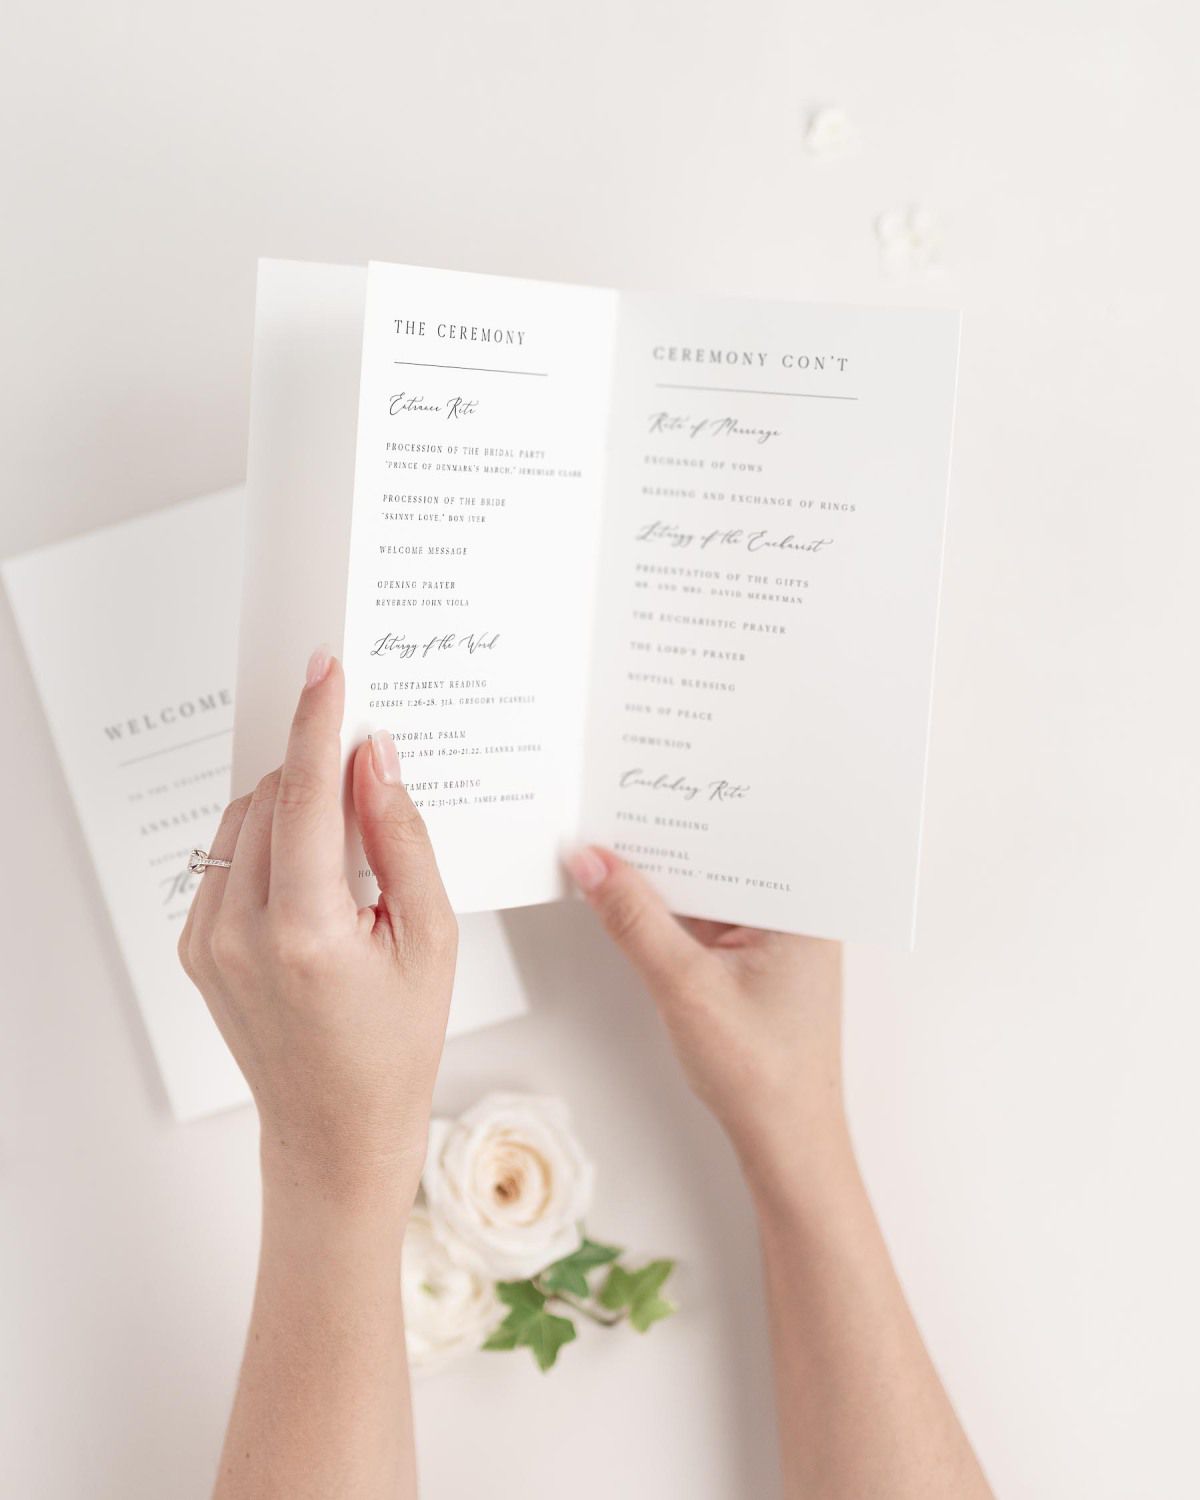 THE CEREMONY
Entrance Rite
PROCESSION OF THE BRIDAL PARTY
"PRINCE OF DENMARK'S MARCH," JEREMIAH CLARK
PROCESSION OF THE BRIDE
"SKINNY LOVE," BON IVER
WELCOME MESSAGE
OPENING PRAYER
REVEREND JOHN VIOLA
Liturgy of the Word
OLD TESTAMENT READING
GENESIS 1:26-28, 31A, GREGORY
ONSORIAL PSALM
AND 18,20-21,22,
TAMENT READING
12:31-13:8A, JAMES
CEREMONY CON'T
Rite of Marriage
EXCHANGE OF VOWS
BLESSING AND EXCHANGE OF RINGS
Liturgy of the Eucharist
PRESENTATION OF THE GIFTS
MR. AND MRS. DAVID MERRYMAN
THE EUCHARISTIC PRAYER
THE LORD'S PRAYER
NUPTIAL BLESSING
SIGN OF PEACE
COMMUNION
Concluding Rite
FINAL BLESSING
RECESSIONAL
TUNE," HENRY PURCELL
WELCOME
TO THE
ANNALENA